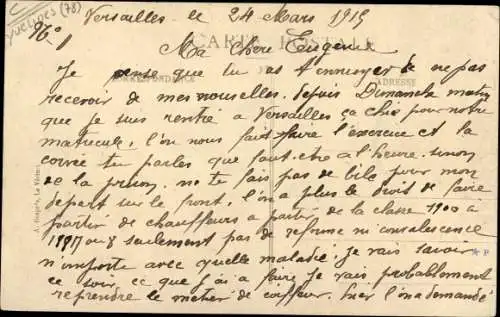 Yvelines (78)
Versailles. le 24 Mars 1915
N° 1
CARTE POSTALE
Ma Chère Eugenie
CORRESPONDANCE
ADRESSE
Je pense que tu as t'ennuyer de ne pas
recevoir de mes nouvelles. depuis Dimanche matin
que je suis rentré a Versailles ça chie pour notre
matricule, l'on nous fait faire l'exercice et la
corvée te parles que faut etre a l'heure. sinon
de la prison. ne te fais pas de bile pour mon
départ sur le front, l'on a plus le droit de faire
partir de chauffeurs a partir de la classe 1900 a
1887 ou 8 seulement pas de reforme ni convalescence
n'importe avec quelle maladie. je vais savoir
ce soir ce que j'ai a faire je vais probablement
reprendre le métier de coiffeur. hier l'on a demandé